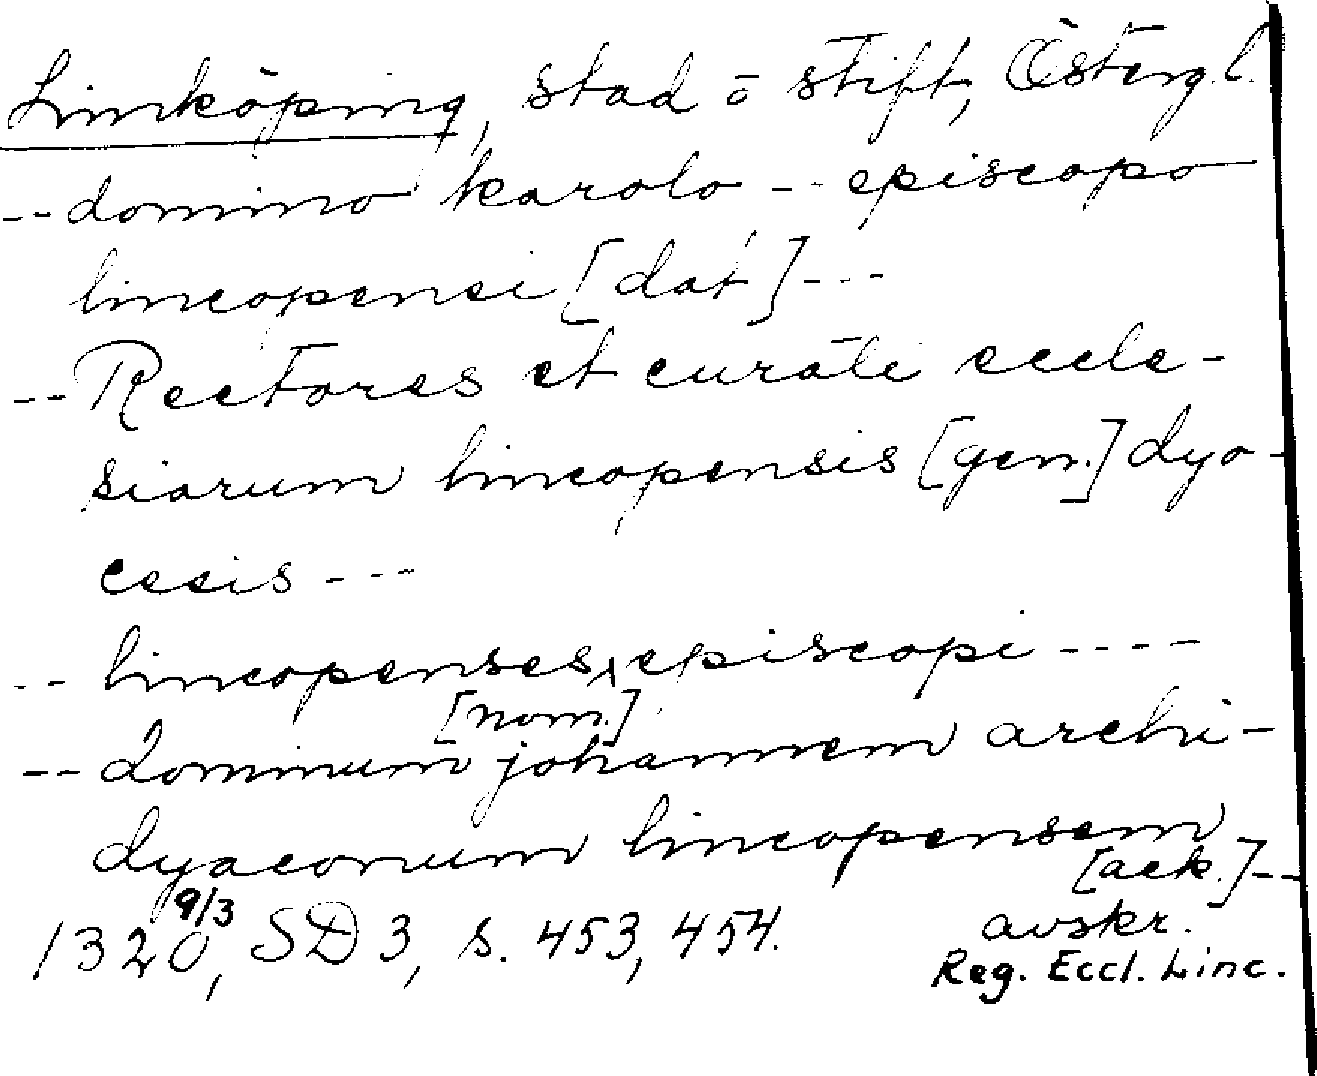 Linköping, stad o stift, Östergl.
-- domino karolo -- episcopo
lincopensi [dat] ---
-- Rectores et curati eccle-
siarum lincopensis [gen.] dyo-
cesis ---
-- lincopenses, episcopi ----
[nom.]
-- dominum johannem archi-
dyaconum lincopensem
[ack.] --
1320 9/3, SD 3, s. 453, 454.
avskr.
Reg. Eccl. Linc.